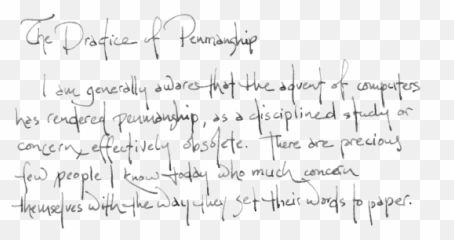 The Practice of Penmanship
I am generally aware that the advent of computers
has rendered penmanship, as a disciplined study or
concern, effectively obsolete. There are precious
few people I know today who much concern
themselves with the way they set their words to paper.